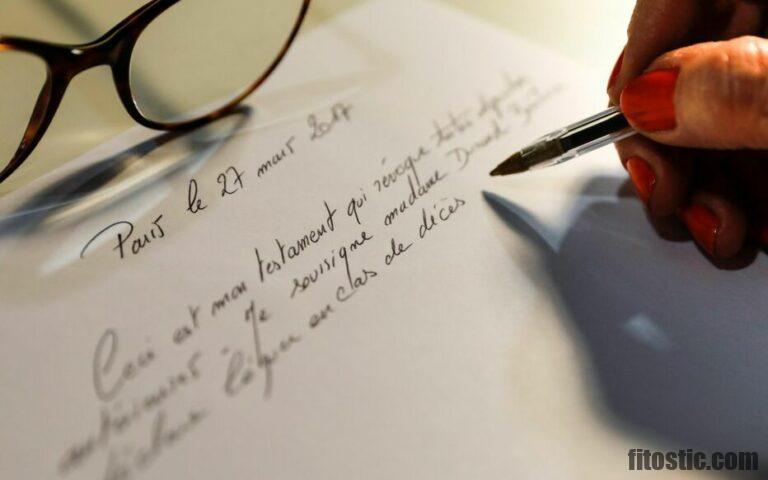 Paris le 27 mars 2017
Ceci est mon testament qui révoque toutes
antérieures. Je soussigne madame Durand
déclare léguer en cas de décès
fitostic.com